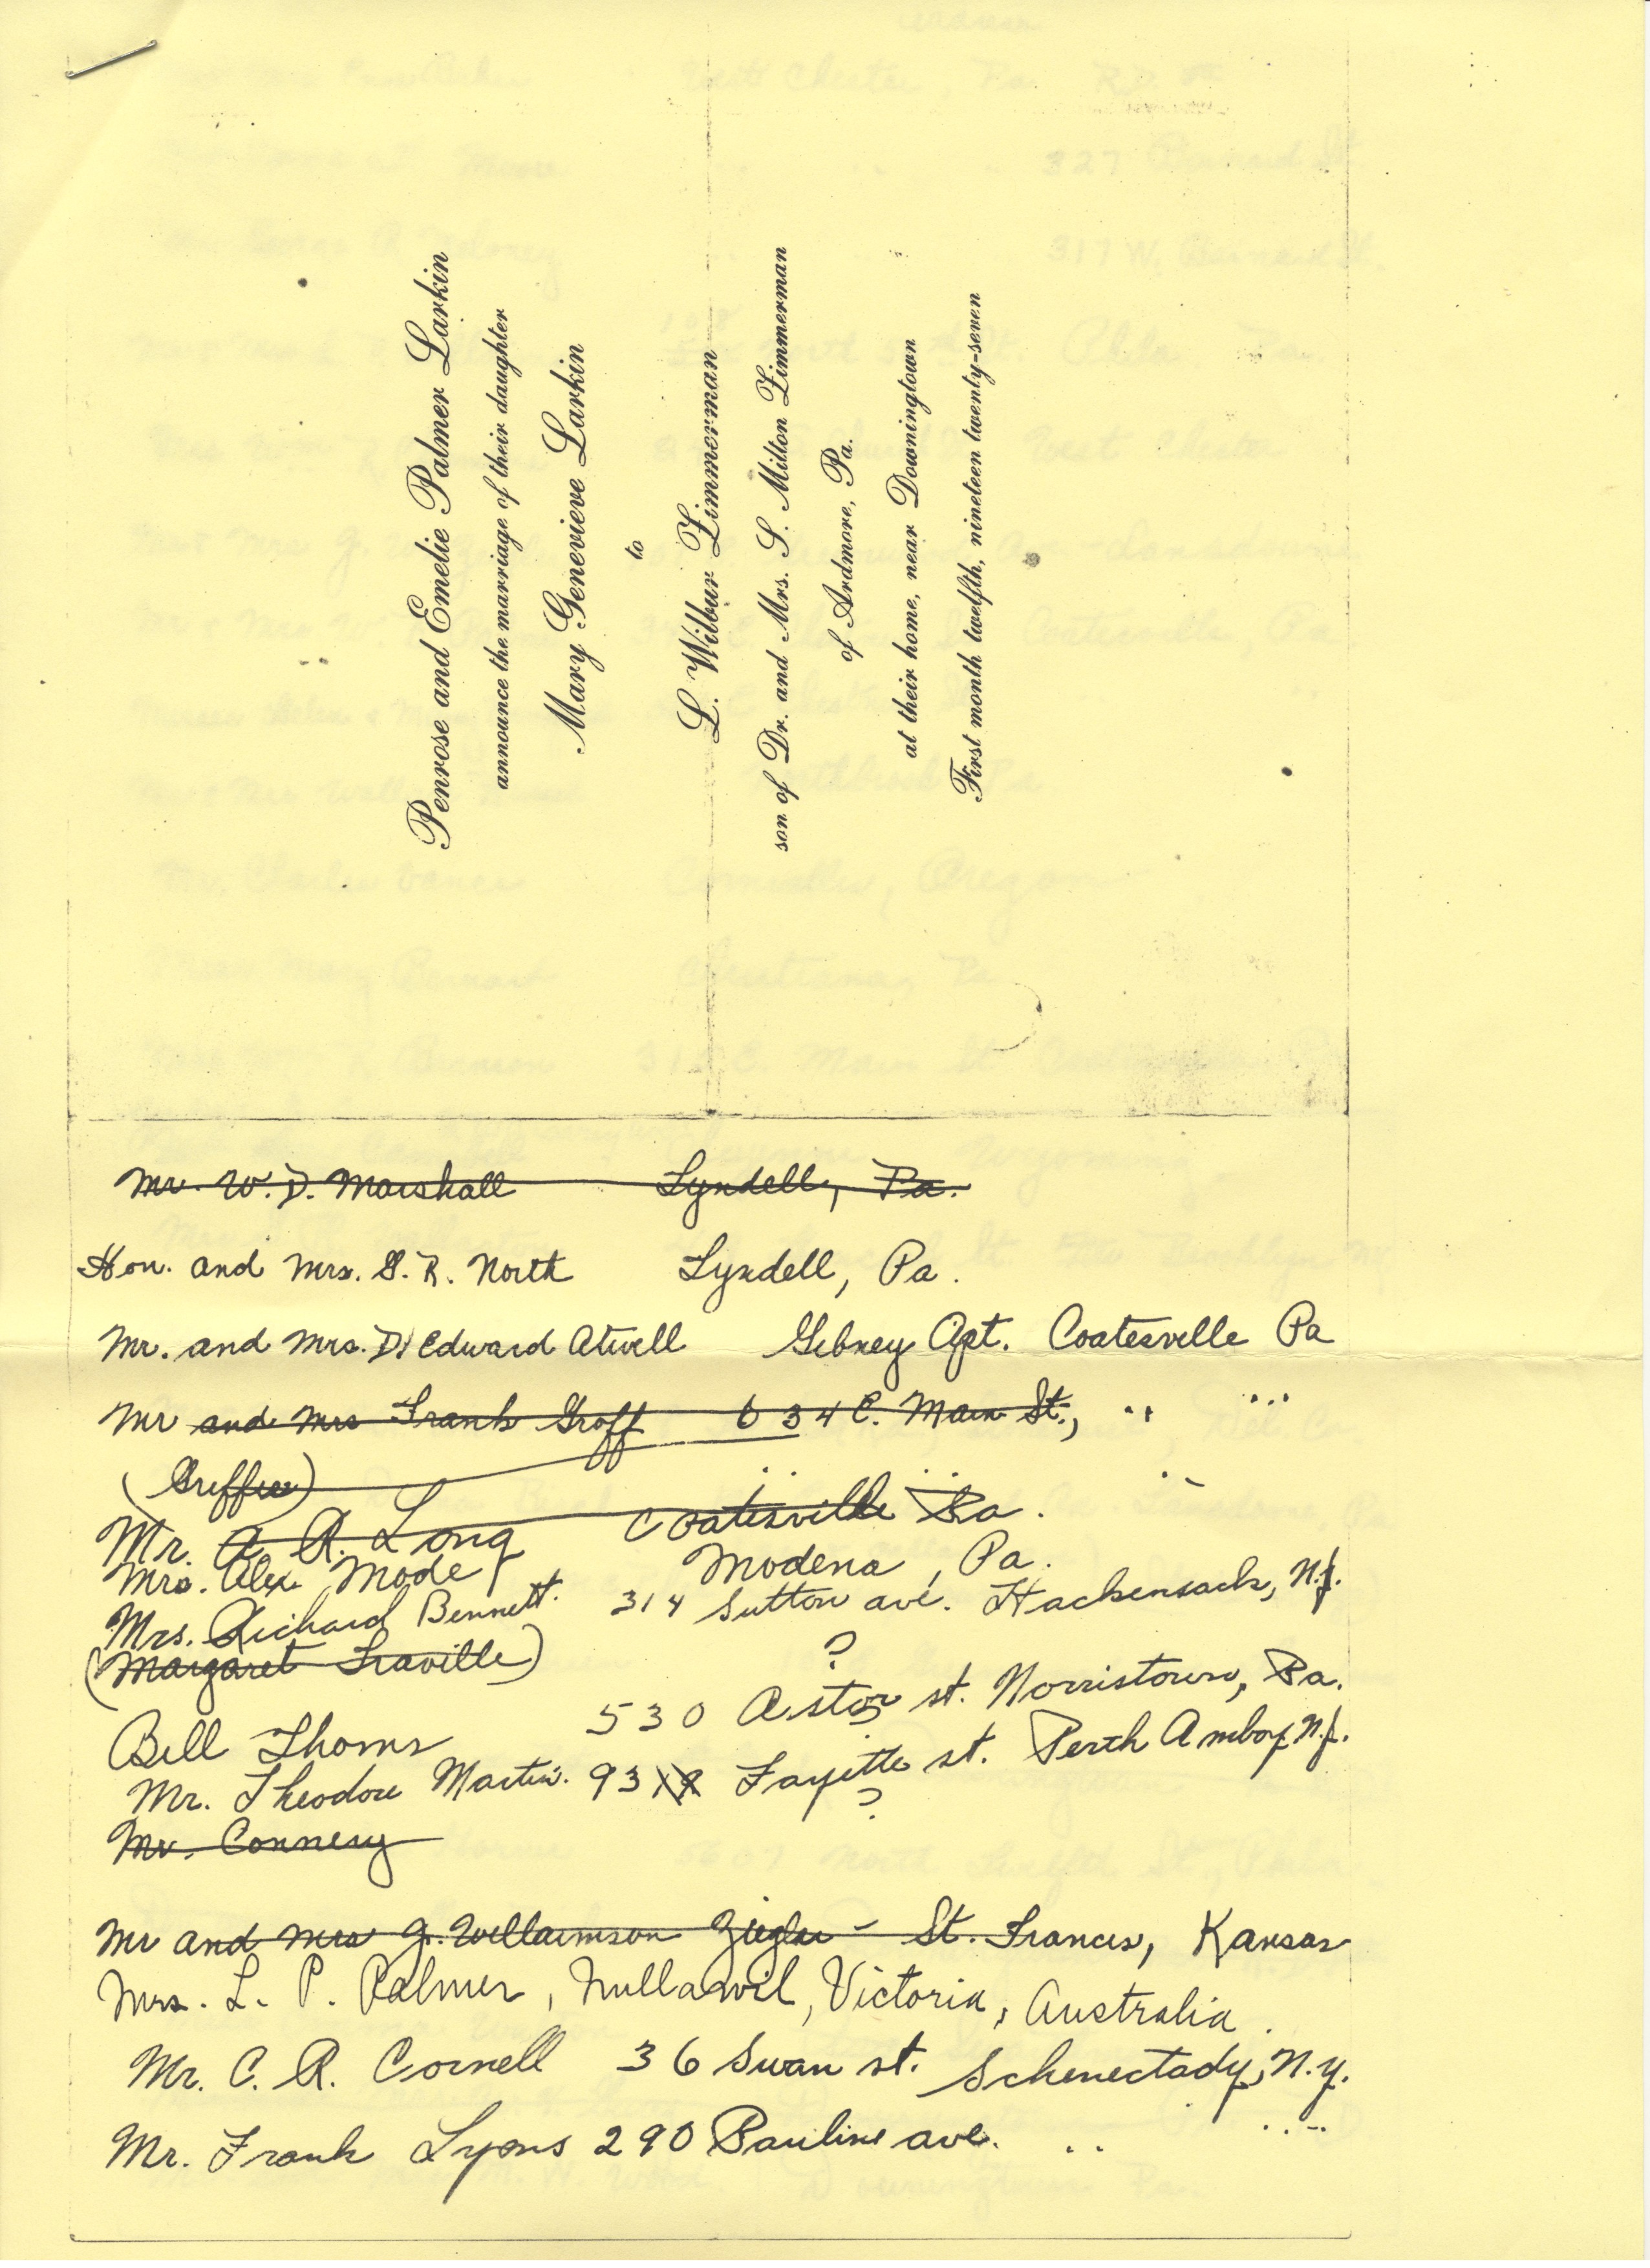 Penrose and Emelie Palmer Larkin
announce the marriage of their daughter
Mary Genevieve Larkin
to
L. Wilbur Zimmerman
son of Dr. and Mrs. S. Milton Zimmerman
of Ardmore, Pa.
at their home, near Downingtown
First month twelfth, nineteen twenty-seven
Mr. W. D. Marshall Lyndell, Pa.
Hon. and Mrs. S. R. North Lyndell, Pa.
Mr. and Mrs. D. Edward Atwell Gibney Apt. Coatesville Pa
Mr and Mrs Frank Groff 634 E. Main St., " "
(Griffee) " " "
Mr. A. R. Long Coatesville Pa.
Mrs. Alex Mode Modena, Pa.
Mrs. Richard Bennett. 314 Sutton ave. Hackensack, N.J.
(Margaret Fraville) ?
Bill Thoms 530 Astor st. Norristown, Pa.
Mr. Theodore Martin. 93 Fayette st. Perth Amboy, N.J.
Mr. Connery ?
Mr and Mrs J. Williamson Ziegler - St. Francis, Kansas
Mrs. L. P. Palmer, Nullawil, Victoria, Australia.
Mr. C. R. Cornell 36 Swan st. Schenectady, N.Y.
Mr. Frank Lyons 290 Pauline ave. " "